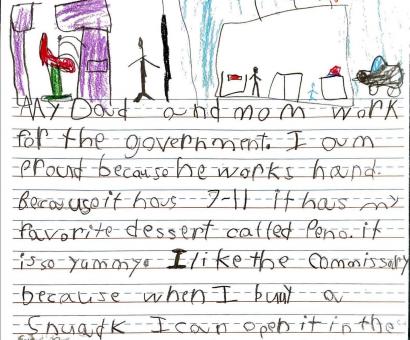 My Dad and mom work
for the government. I am
proud because he works hard.
Because it has 7-11 it has my
favorite dessert called Peno. it
is so yummy. I like the Commissary
because when I buy a
Snack I can open it in the